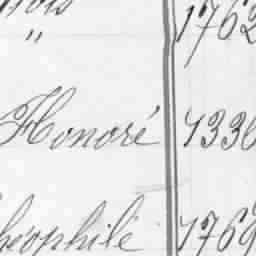 " 1762
Honoré 1336
Théophile 1769